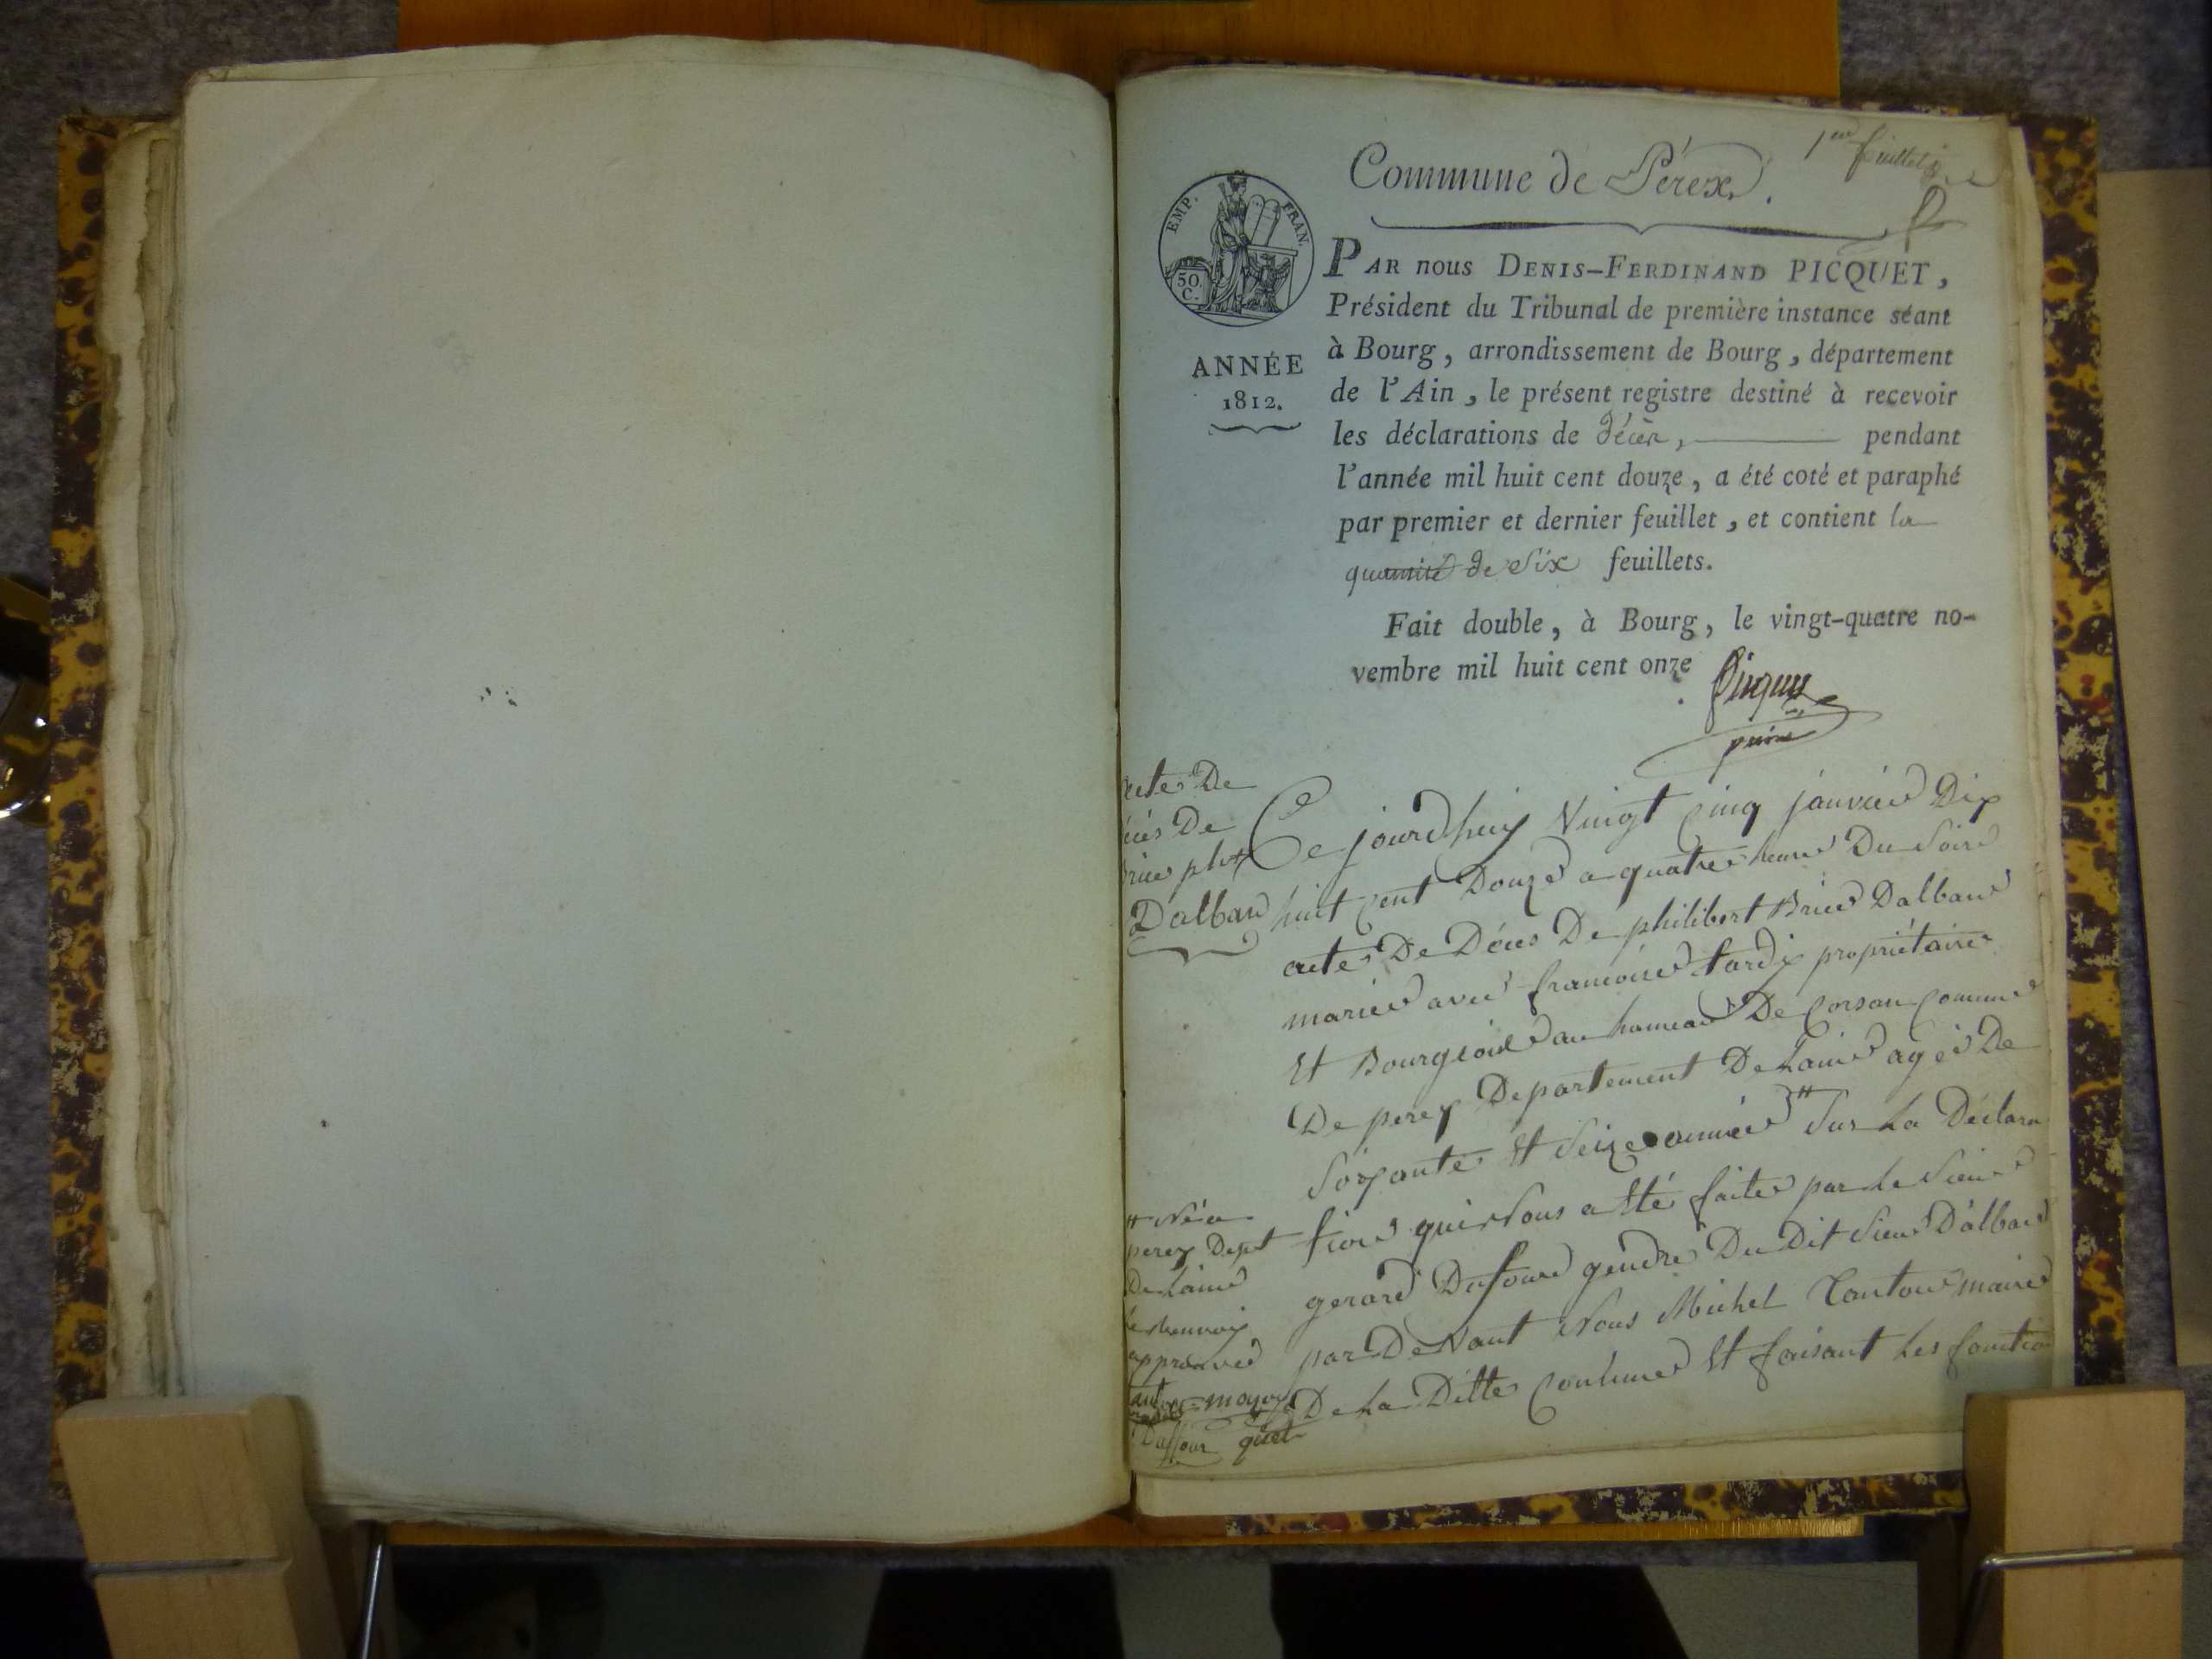 1er feuillet
Commune de Pérex.
EMP. FRAN.
50. C.
ANNÉE
1812.
PAR nous DENIS-FERDINAND PICQUET,
Président du Tribunal de première instance séant
à Bourg, arrondissement de Bourg, département
de l'Ain, le présent registre destiné à recevoir
les déclarations de décès, pendant
l'année mil huit cent douze, a été coté et paraphé
par premier et dernier feuillet, et contient la
quantité de Six feuillets.
Fait double, à Bourg, le vingt-quatre no-
vembre mil huit cent onze
Picquet
acte De
décès De
Brice pht
Dalban
Ce jourdhuy Vingt Cinq janvier Dix
huit Cent Douze a quatre heure Du Soir
acte De Déces De philibert Brice Dalban
marié avec francoise tardy propriétaire
Et Bourgeois au hameau De Corsan Commune
De perex Departement De Lain agé De
Soixante Et Seize année # Sur La Déclara
tion qui Nous a Eté faite par Le Sieur
gerard Dufour gendre Du Dit Sieur Dalban
par Devant Nous Michel Tanton maire
De La Ditte Comune Et faisant Les fonction
# Né a
perex Dept
De Lain
le Renvoy
approuvé